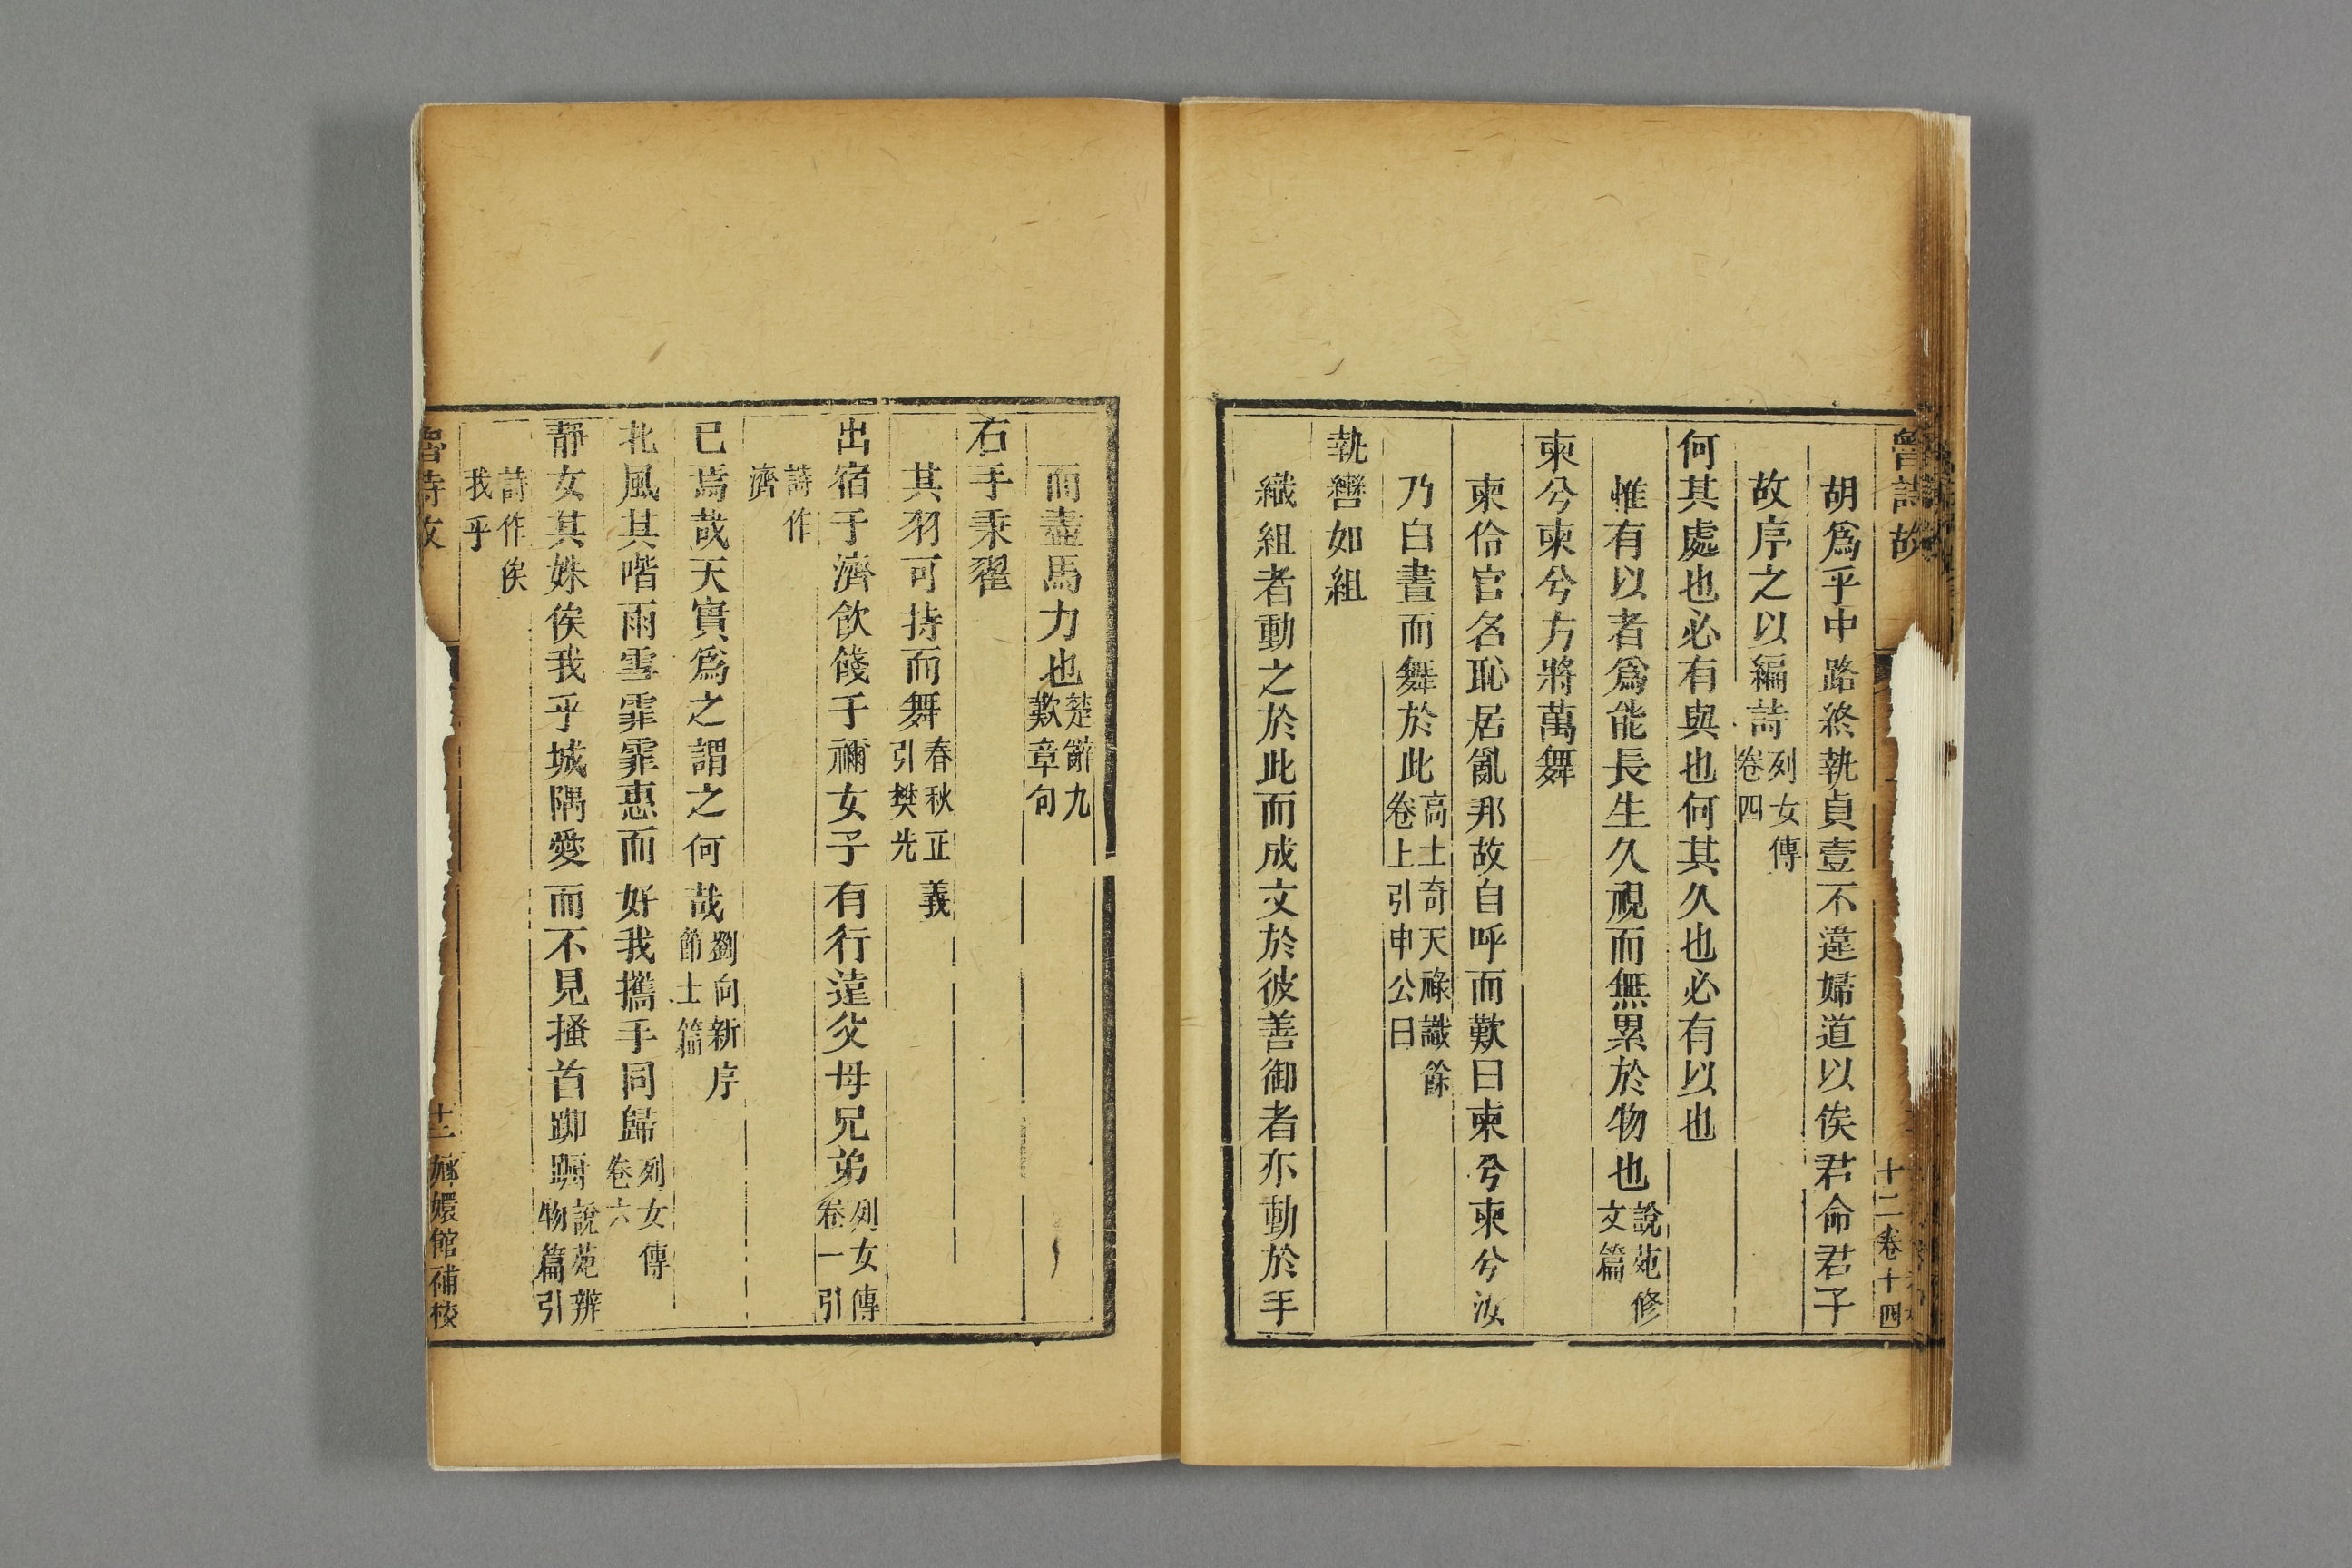 魯詩故
十二卷十四
胡爲乎中路終執貞壹不違婦道以俟君命君子
故序之以編詩列女傳卷四
何其處也必有與也何其久也必有以也
惟有以者爲能長生久視而無累於物也說苑修文篇
柬兮柬兮方將萬舞
柬伶官名恥居亂邦故自呼而歎曰柬兮柬兮汝
乃白晝而舞於此高士奇天祿識餘卷上引申公曰
執轡如組
織組者動之於此而成文於彼善御者亦動於手
而盡馬力也楚辭九歎章句
右手秉翟
其羽可持而舞春秋正義引樊光
出宿于濟飲餞于禰女子有行遠父母兄弟列女傳卷一引
詩作濟
已焉哉天實爲之謂之何哉劉向新序節士篇
北風其喈雨雪霏霏惠而好我攜手同歸列女傳卷六
靜女其姝俟我乎城隅愛而不見搔首踟躕說苑辨物篇引
詩作俟我乎
魯詩故
十二
嫏嬛館補校